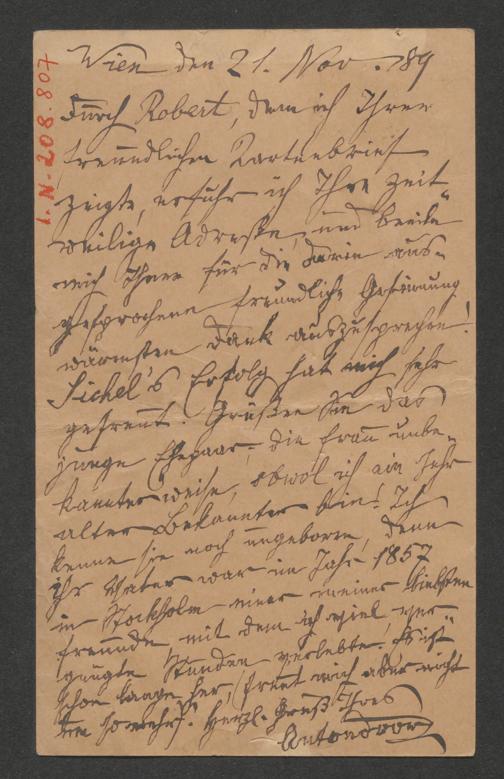 I. N. 208.807
Wien den 21. Nov. 89
Durch Robert, dem ich Ihren
freundlichen Kartenbrief
zeigte, erfuhr ich Ihre zeit-
weilige Adresse, und beeile
mich Ihnen für die darin aus-
gesprochene freundliche Gesinnung
wärmsten Dank auszusprechen!
Sichel's Erfolg hat mich sehr
gefreut. Grüßen Sie das
junge Ehepaar, die Frau unbe-
kannterweise, obwol ich ein sehr
alter Bekannter bin! Ich
kenne sie noch ungeboren, denn
ihr Vater war im Jahr 1857
in Stockholm einer meiner liebsten
Freunde mit dem ich viel ver-
gnügte Stunden verlebte!
schon lange her, freut mich aber nicht
Herzl. Gruß Ihres
Anton Door